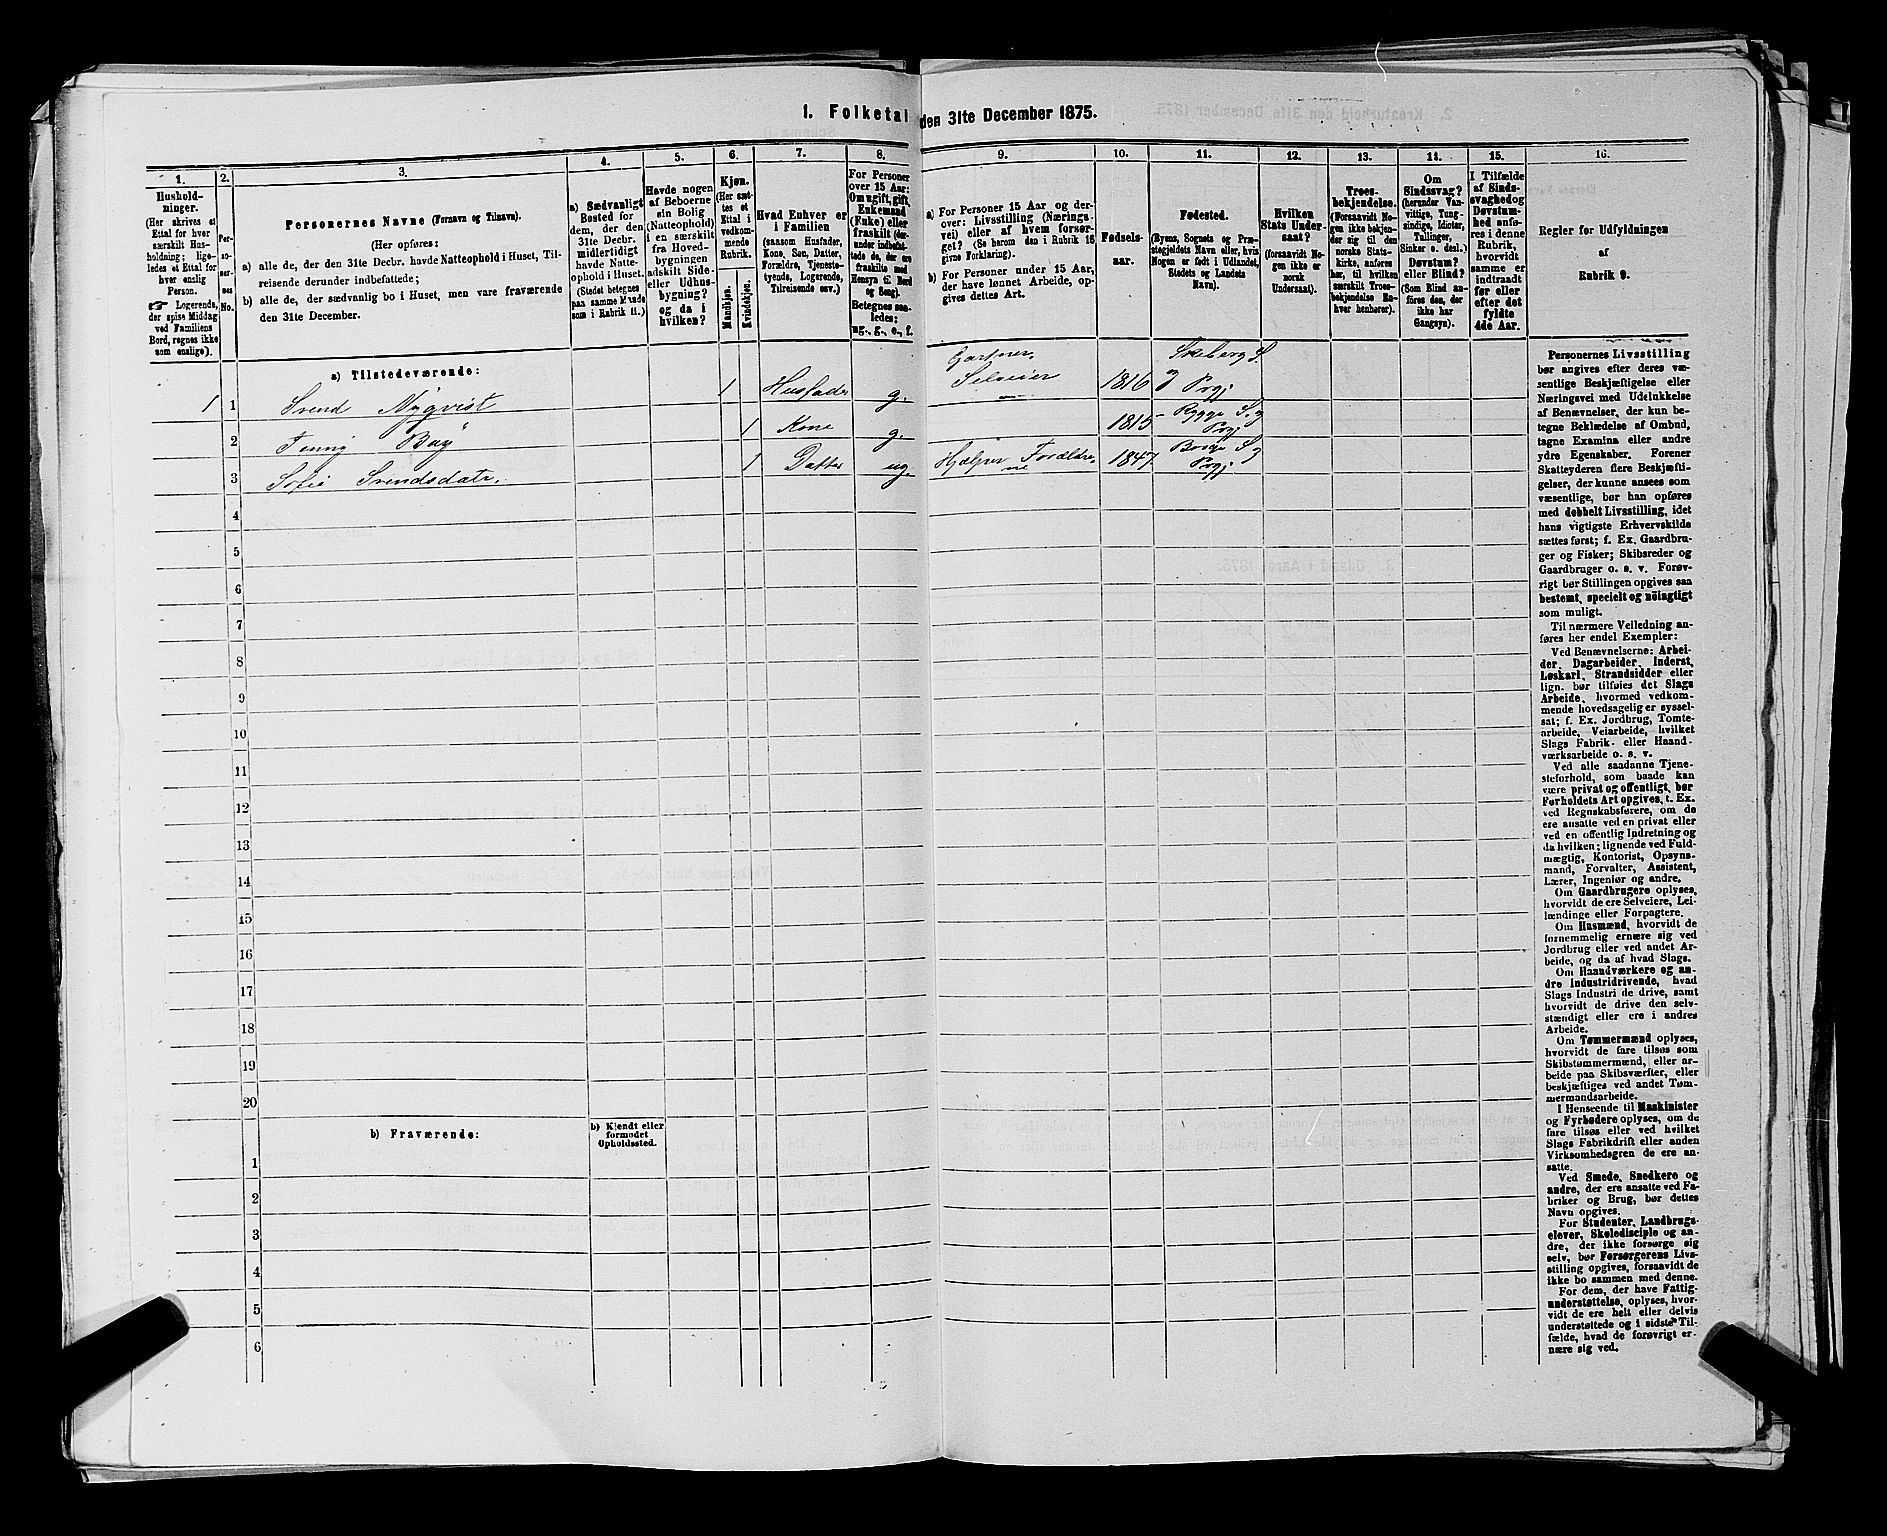 1. Folketal den 31te December 1875.
1.
2.
3.
4.
5.
6.
7.
8.
9.
10.
11.
12.
13.
14.
15.
16.
Hushold-
ninger.
(Her skrives et
Ettal for hver
særskilt Hus-
holdning; lige-
ledes et Ettal for
hver enslig
Person.
☞ Logerende,
der spise Middag
ved Familiens
Bord, regnes ikke
som enslige).
Per-
so-
ner-
nes
No.
Personernes Navne (Fornavn og Tilnavn).
(Her opføres:
a) alle de, der den 31te Decbr. havde Natteophold i Huset, Til-
reisende derunder indbefattede;
b) alle de, der sædvanlig bo i Huset, men vare fraværende
den 31te December.
a) Sædvanligt
Bosted for
dem, der den
31te Decbr.
midlertidigt
havde Natte-
ophold i Huset.
(Stedet betegnes
paa samme Maade
som i Rubrik 11.)
Havde nogen
af Beboerne
ein Bolig
(Natteophold)
i en særskilt
fra Hoved-
bygningen
adskilt Side-
eller Udhus-
bygning?
og da i
hvilken?
Kjøn.
(Her sæt-
tes et
Ettal i
vedkom-
mende
Rubrik.
Mandkjøn.
Kvindekjøn.
Hvad Enhver er
i Familien
(saasom Husfader,
Kone, Søn, Datter,
Forældre, Tjeneste-
tyende, Logerende,
Tilreisende osv.)
For Personer
over 15 Aar:
Om ugift, gift,
Enkemand
(Enke) eller
fraskilt (der-
under indbefat-
tede de, der ere
fraskilte med
Hensyn til Bord
og Seng).
Betegnes saa-
ledes:
ug., g., e., f.
a) For Personer 15 Aar og der-
over: Livsstilling (Nærings-
vei) eller af hvem forsør-
get? (Se herom den i Rubrik 16
givne Forklaring).
b) For Personer under 15 Aar,
der have lønnet Arbeide, op-
gives dettes Art.
Fødsels-
aar.
Fødested.
(Byens, Sognets og Præ-
stegjeldets Navn eller, hvis
Nogen er født i Udlandet,
Stedets og Landets
Navn).
Hvilken
Stats Under-
saat?
(forsaavidt No-
gen ikke er
norsk
Undersaat).
Troes-
bekjendelse.
(Forsaavidt No-
gen ikke bekjen-
der sig til den
norske Stats-
kirke, anføres
her, til hvilken
særskilt Troes-
bekjendelse En-
hver henhører).
Om
Sindssvag?
(herunder Van-
vittige, Tung-
sindige, Idioter,
Tullinger,
Sinker o. desl.)
Døvstum?
eller Blind?
(Som Blind an-
føres den, der
ikke har
Gangsyn).
I Tilfælde
af Sinds-
svaghed og
Døvstum-
hed anfø-
res i denne
Rubrik,
hvorvidt
samme er
indtraadt
før eller
efter det
fyldte
4de Aar.
Regler for Udfyldningen
af
Rubrik 9.
a) Tilstedeværende:
1 1 Svend Nyqvist 1 Husfader g. Gartner, Selveier 1816 Skeberg S. og Prgj
2 Jenny Bay 1 Kone g. 1815 Rygge S. og Prgj.
3 Sofie Svendsdatr. 1 Datter ug. Hjelper Forældrene 1847 Borge S. og Prgj.
4
5
6
7
8
9
10
11
12
13
14
15
16
17
18
19
20
b) Fraværende:
b) Kjendt eller
formodet
Opholdssted.
1
2
3
4
5
6
Personernes Livsstilling
bør angives efter deres væ-
sentlige Beskjæftigelse eller
Næringsvei med Udelukkelse
af Benævnelser, der kun be-
tegne Beklædelse af Ombud,
tagne Examina eller andre
ydre Egenskaber. Forener
Skatteyderen flere Beskjæfti-
gelser, der kunne ansees som
væsentlige, bør han opføres
med dobbelt Livsstilling, idet
hans vigtigste Erhvervskilde
sættes først; f. Ex. Gaardbru-
ger og Fisker; Skibsreder og
Gaardbruger o. s. v. Forøv-
rigt bør Stillingen opgives saa
bestemt, specielt og nøiagtigt
som muligt.
Til nærmere Veiledning an-
føres her endel Exempler:
Ved Benævnelserne: Arbei-
der, Dagarbeider, Inderst,
Løskarl, Strandsidder eller
lign. bør tilføies det Slags
Arbeide, hvormed vedkom-
mende hovedsagelig er syssel-
sat; f. Ex. Jordbrug, Tomte-
arbeide, Veiarbeide, hvilket
Slags Fabrik- eller Haand-
værksarbeide o. s. v.
Ved alle saadanne Tjene-
steforhold, som baade kan
være privat og offentligt, bør
Forholdets Art opgives, t. Ex.
ved Regnskabsførere, om de
ere ansatte ved en privat eller
ved en offentlig Indretning og
da hvilken; lignende ved Fuld-
mægtig, Kontorist, Opsyns-
mand, Forvalter, Assistent,
Lærer, Ingeniør og andre.
Om Gaardbrugere oplyses,
hvorvidt de ere Selveiere, Lei-
lændinge eller Forpagtere.
Om Husmænd, hvorvidt de
fornemmelig ernære sig ved
Jordbrug eller ved andet Ar-
beide, og da af hvad Slags.
Om Haandværkere og an-
dre Industridrivende, hvad
Slags Industri de drive, samt
hvorvidt de drive den selv-
stændigt eller ere i andres
Arbeide.
Om Tømmermænd oplyses,
hvorvidt de fare tilsøs som
Skibstømmermænd, eller ar-
beide paa Skibsværfter, eller
beskjæftiges ved andet Tøm-
mermandsarbeide.
I Henseende til Maskinister
og Fyrbødere oplyses, om de
fare tilsøs eller ved hvilket
Slags Fabrikdrift eller anden
Virksomhedsgren de ere an-
satte.
Ved Smede, Snedkere og
andre, der ere ansatte ved Fa-
briker og Brug, bør dettes
Navn opgives.
For Studenter, Landbrugs-
elever, Skoledisciple og an-
dre, der ikke forsørge sig
selv, bør Forsørgerens Livs-
stilling opgives, forsaavidt de
ikke bo sammen med denne.
For dem, der have Fattig-
understøttelse, oplyses, hvor-
vidt de ere helt eller delvis
understøttede og i sidste Til-
fælde, hvad de forøvrigt er-
nære sig ved.